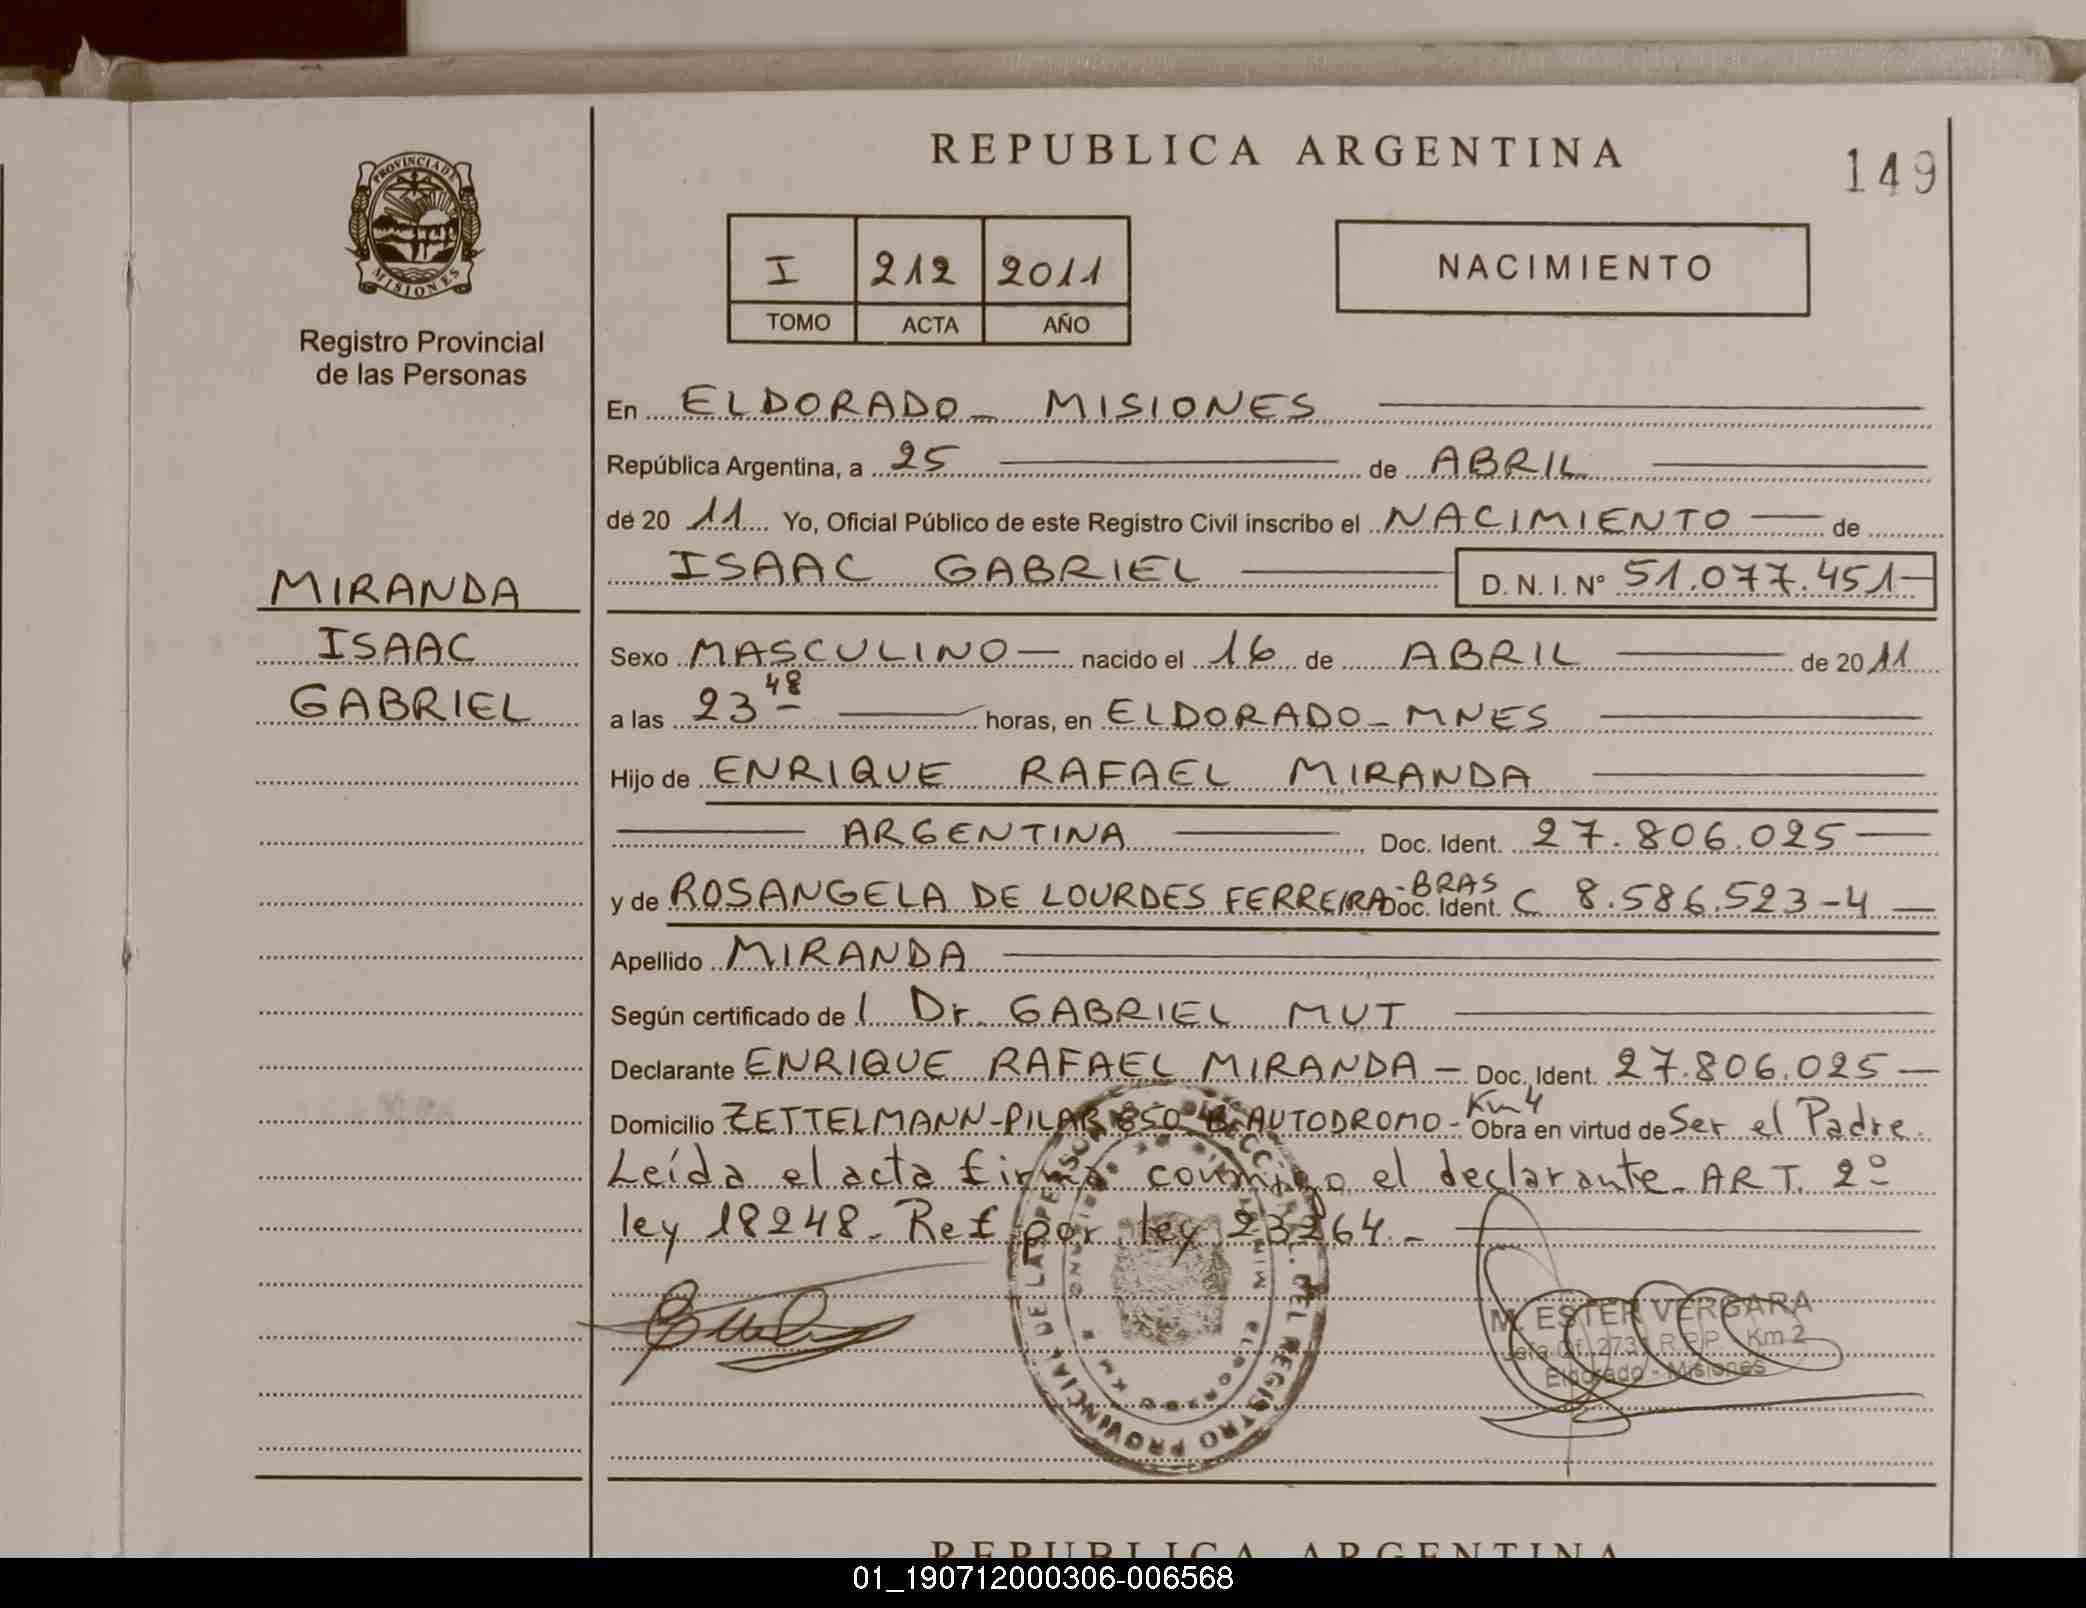 REPUBLICA ARGENTINA
149
PROVINCIA DE
MISIONES
Registro Provincial
de las Personas
I 212 2011
TOMO ACTA AÑO
NACIMIENTO
En ELDORADO - MISIONES
República Argentina, a 25 de ABRIL
de 20 11 Yo, Oficial Público de este Registro Civil inscribo el NACIMIENTO de
ISAAC GABRIEL D. N. I. Nº 51.077.451
MIRANDA
ISAAC
GABRIEL
Sexo MASCULINO nacido el 16 de ABRIL de 20 11
a las 23 48 horas, en ELDORADO - MNES
Hijo de ENRIQUE RAFAEL MIRANDA
ARGENTINA Doc. Ident. 27.806.025
y de ROSANGELA DE LOURDES FERREIRA - BRAS Doc. Ident. C 8.586.523-4
Apellido MIRANDA
Según certificado de l Dr. GABRIEL MUT
Declarante ENRIQUE RAFAEL MIRANDA - Doc. Ident. 27.806.025
Domicilio ZETTELMANN-PILAR 850 Bº AUTODROMO - Km 4 Obra en virtud de Ser el Padre.
Leída el acta firma conmigo el declarante. ART. 2º
ley 18248. Ref por ley 23264.-
M. ESTER VERGARA
Jefa Of. 273 R.P.P. Km 2
Eldorado - Misiones
REPUBLICA ARGENTINA
01_190712000306-006568